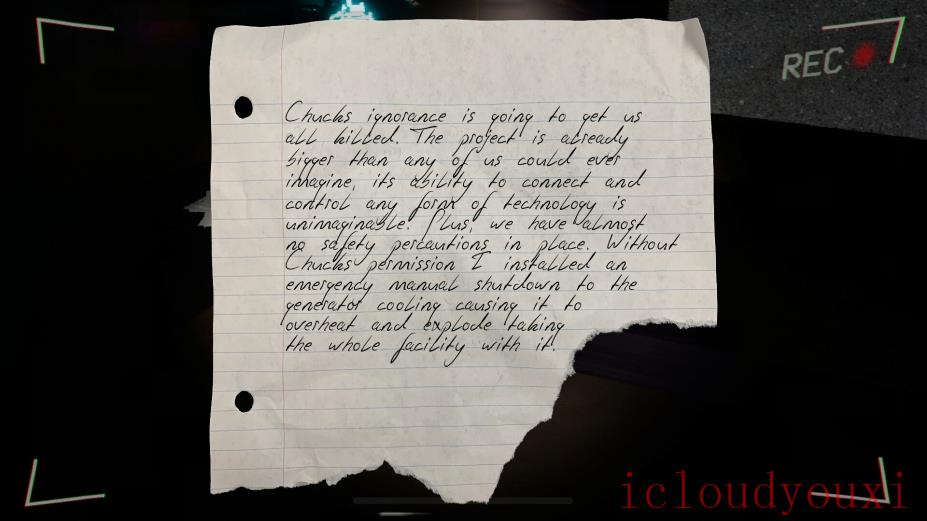 REC
Chucks ignorance is going to get us
all killed. The project is already
bigger than any of us could ever
imagine, its ability to connect and
control any form of technology is
unimaginable. Plus, we have almost
no safety percautions in place. Without
Chucks permission I installed an
emergency manual shutdown to the
generator cooling causing it to
overheat and explode taking
the whole facility with it.
icloudyouxi